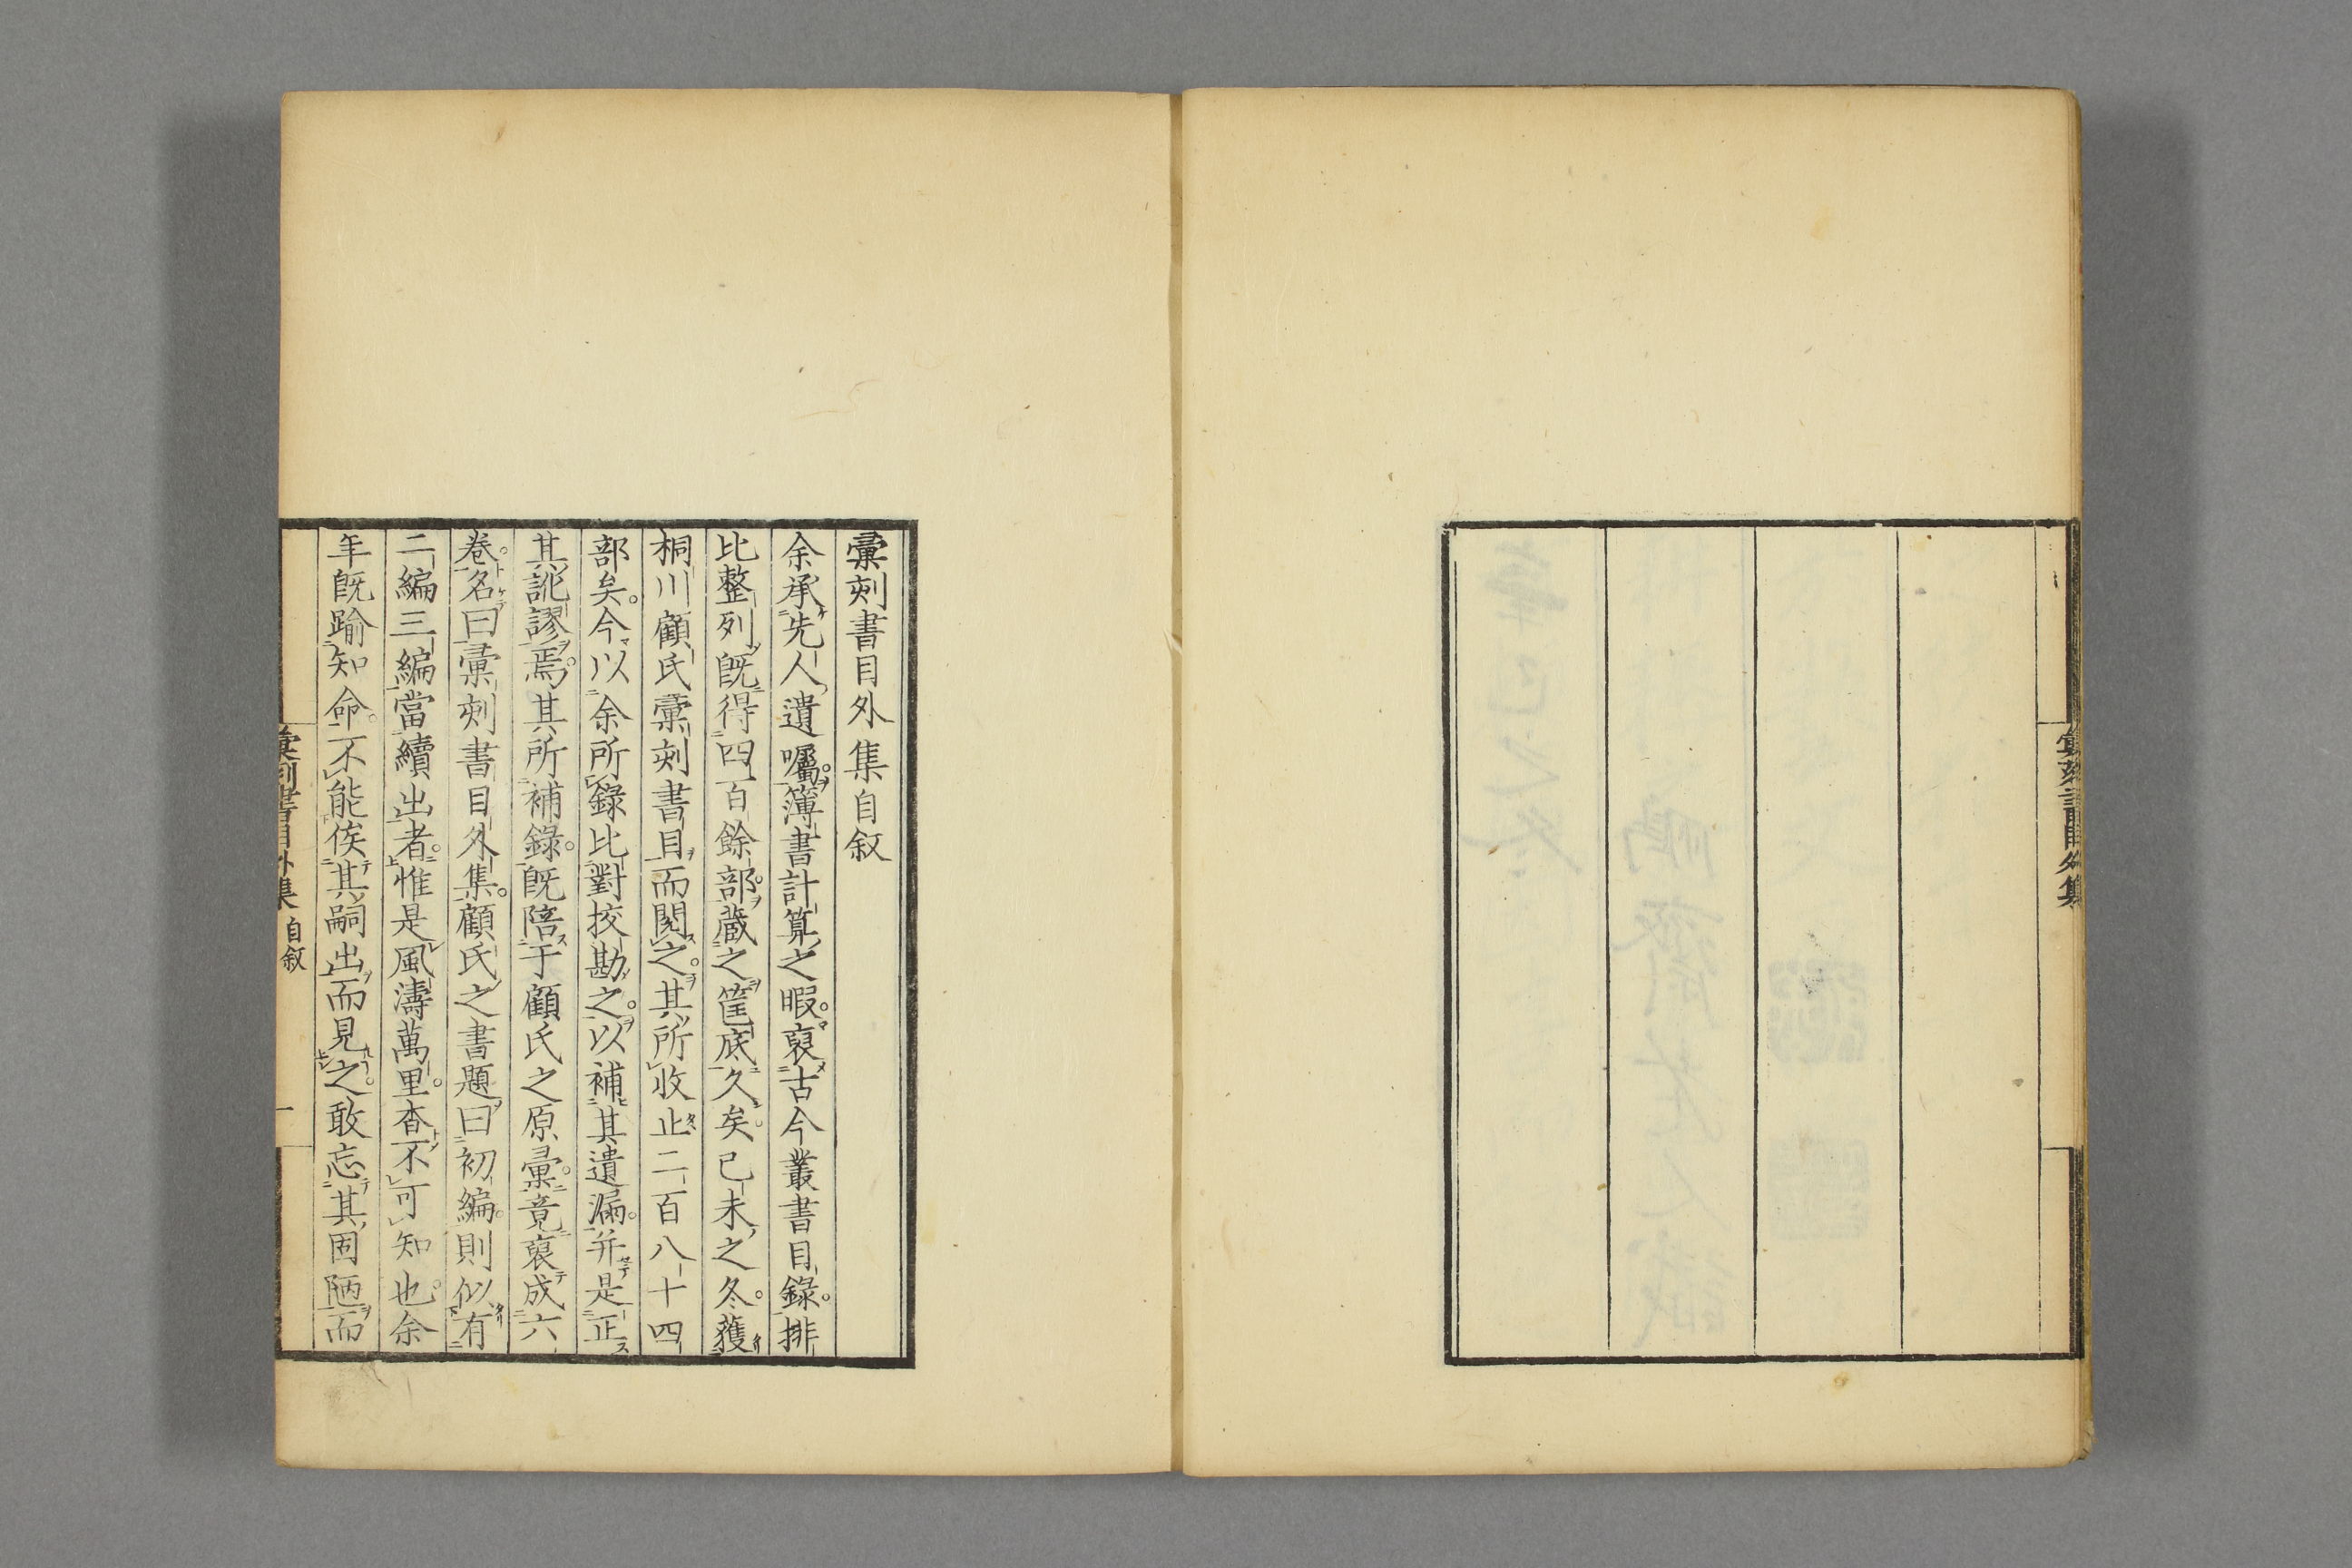 彙刻書目外集
彙刻書目外集自敘
余承先人遺囑。簿書計算之暇。裒古今叢書目錄。排
比整列既得四百餘部。藏之篋底久矣。己未之冬。獲
桐川顧氏彙刻書目而閱之。其所收止二百八十四
部矣。今以余所錄比對挍勘之。以補其遺漏。并是正
其訛謬焉。其所補錄。既陪于顧氏之原彙。竟裒成六
卷。名曰彙刻書目外集。顧氏之書題曰初編。則似有
二編三編當續出者。惟是風濤萬里。杳不可知也。余
年既踰知命。不能俟其嗣出而見之。敢忘其固陋而
彙刻書目外集 自敘 一